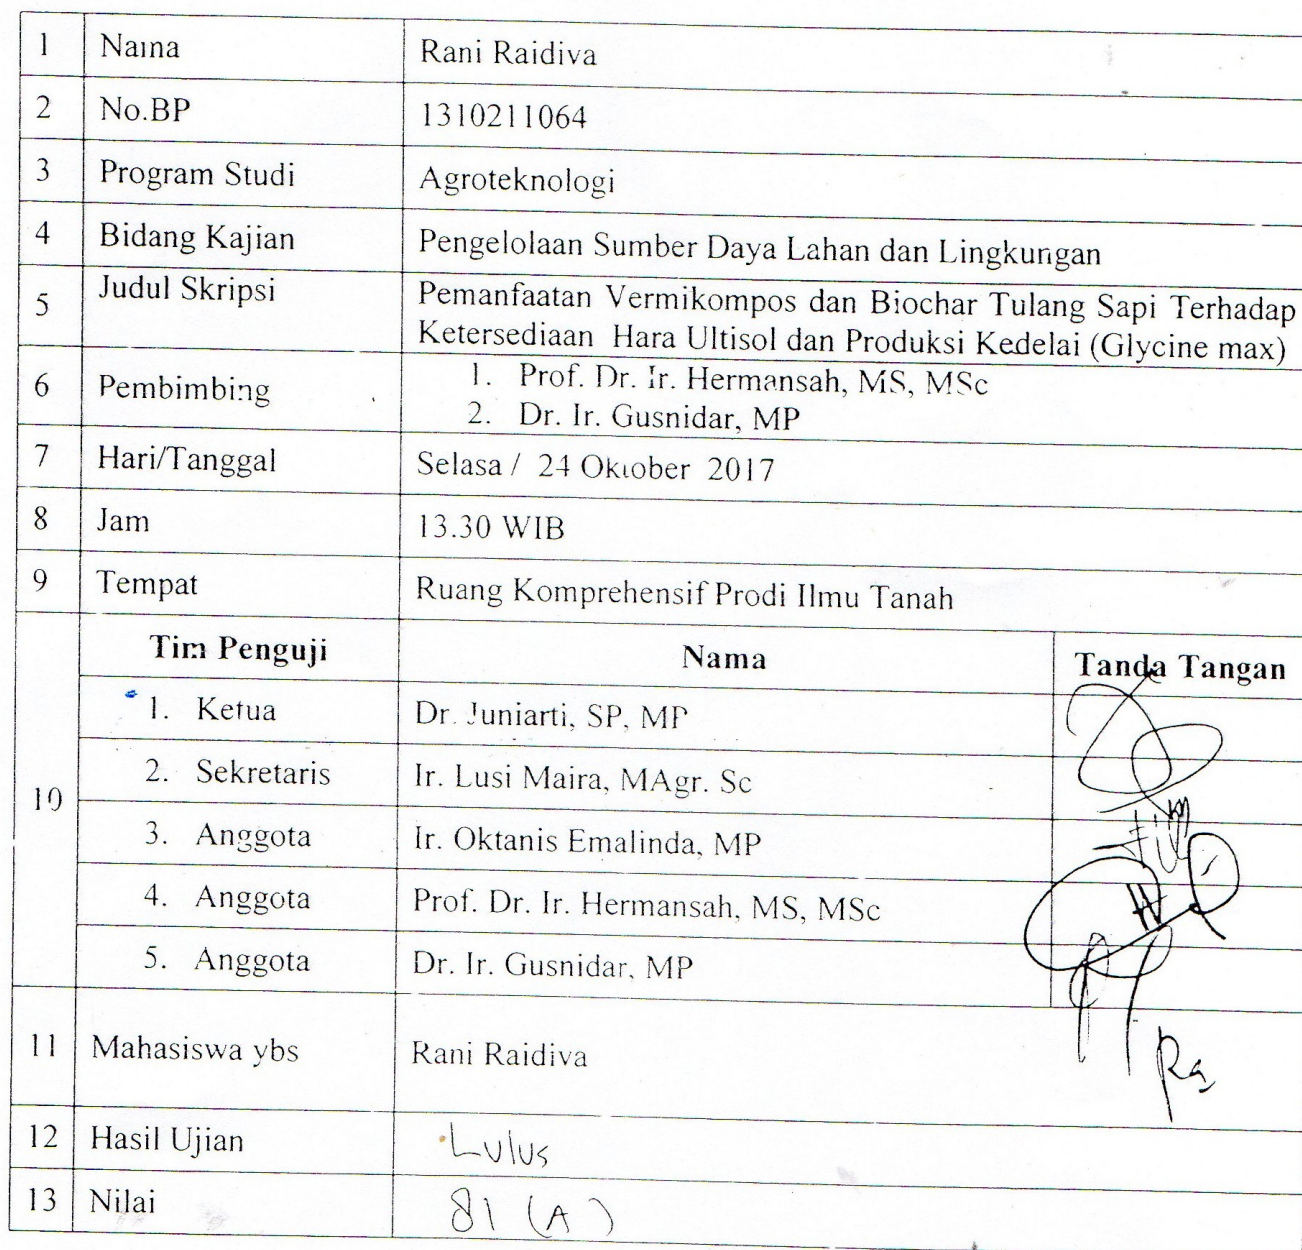 1 Nama Rani Raidiva
2 No.BP 1310211064
3 Program Studi Agroteknologi
4 Bidang Kajian Pengelolaan Sumber Daya Lahan dan Lingkungan
5 Judul Skripsi Pemanfaatan Vermikompos dan Biochar Tulang Sapi Terhadap
Ketersediaan Hara Ultisol dan Produksi Kedelai (Glycine max)
6 Pembimbing 1. Prof. Dr. Ir. Hermansah, MS, MSc
2. Dr. Ir. Gusnidar, MP
7 Hari/Tanggal Selasa / 24 Oktober 2017
8 Jam 13.30 WIB
9 Tempat Ruang Komprehensif Prodi Ilmu Tanah
10 Tim Penguji Nama Tanda Tangan
1. Ketua Dr. Juniarti, SP, MP
2. Sekretaris Ir. Lusi Maira, MAgr. Sc
3. Anggota Ir. Oktanis Emalinda, MP
4. Anggota Prof. Dr. Ir. Hermansah, MS, MSc
5. Anggota Dr. Ir. Gusnidar, MP
11 Mahasiswa ybs Rani Raidiva
12 Hasil Ujian Lulus
13 Nilai 81 (A)